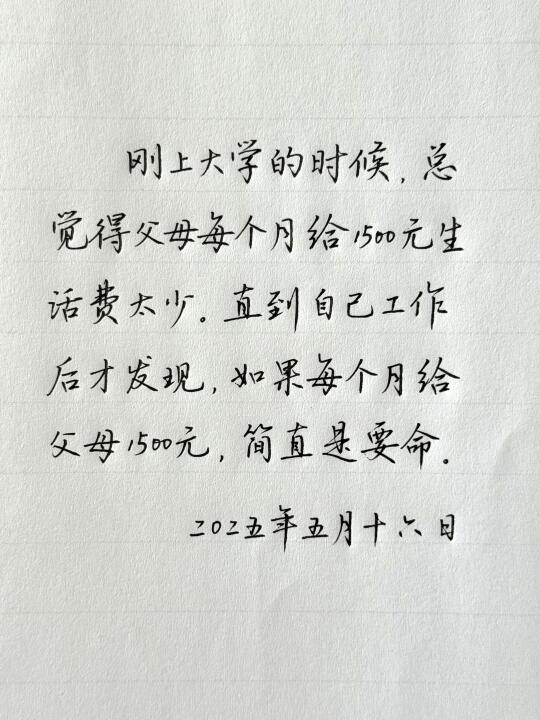 刚上大学的时候,总
觉得父母每个月给1500元生
话费太少。直到自己工作
后才发现,如果每个月给
父母1500元,简直是要命.
二〇二五年五月十六日